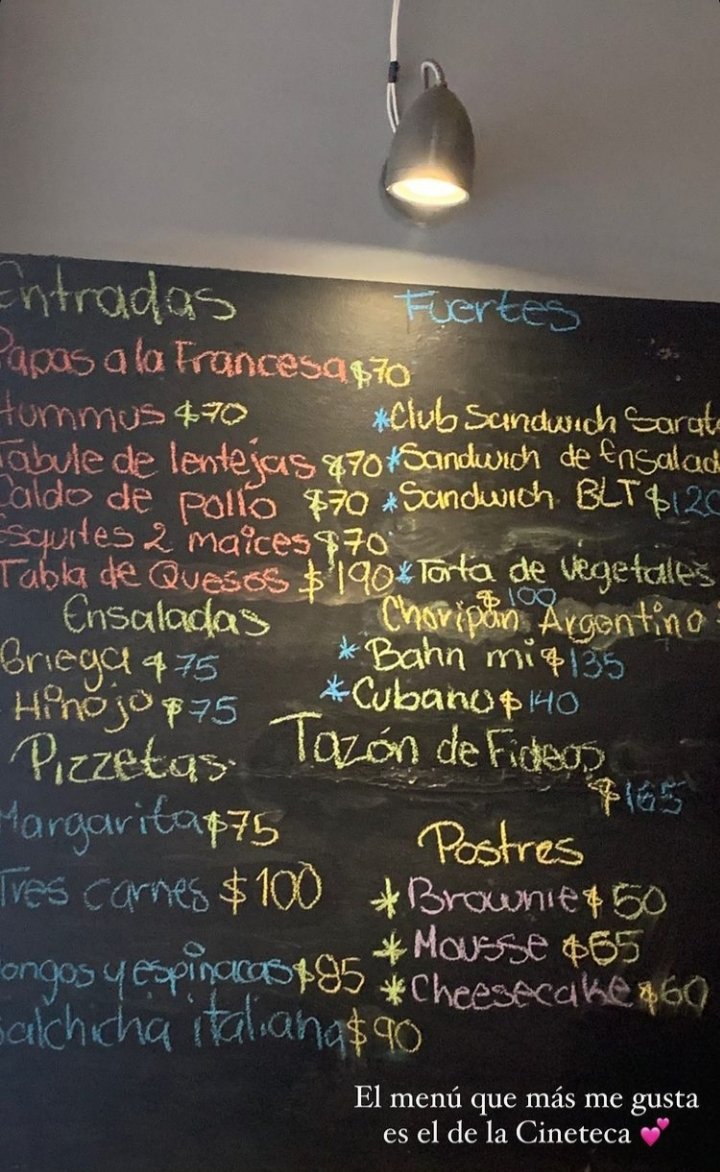 Entradas
Papas a la Francesa $70
Hummus $70
Tabule de lentejas $70
Caldo de pollo $70
Esquites 2 maíces $70
Tabla de Quesos $190
Ensaladas
Griega $75
Hinojo $75
Pizzetas
Margarita $75
Tres carnes $100
ongos y espinacas $85
Salchicha italiana $90
Fuertes
*Club Sandwich
*Sandwich de Ensalad
*Sandwich BLT $120
*Torta de vegetales
$100
Choripán Argentino
*Bahn mi $135
*Cubano $140
Tazón de Fideos
$165
Postres
*Brownie $50
*Mousse $65
*Cheesecake $60
El menú que más me gusta
es el de la Cineteca 💕